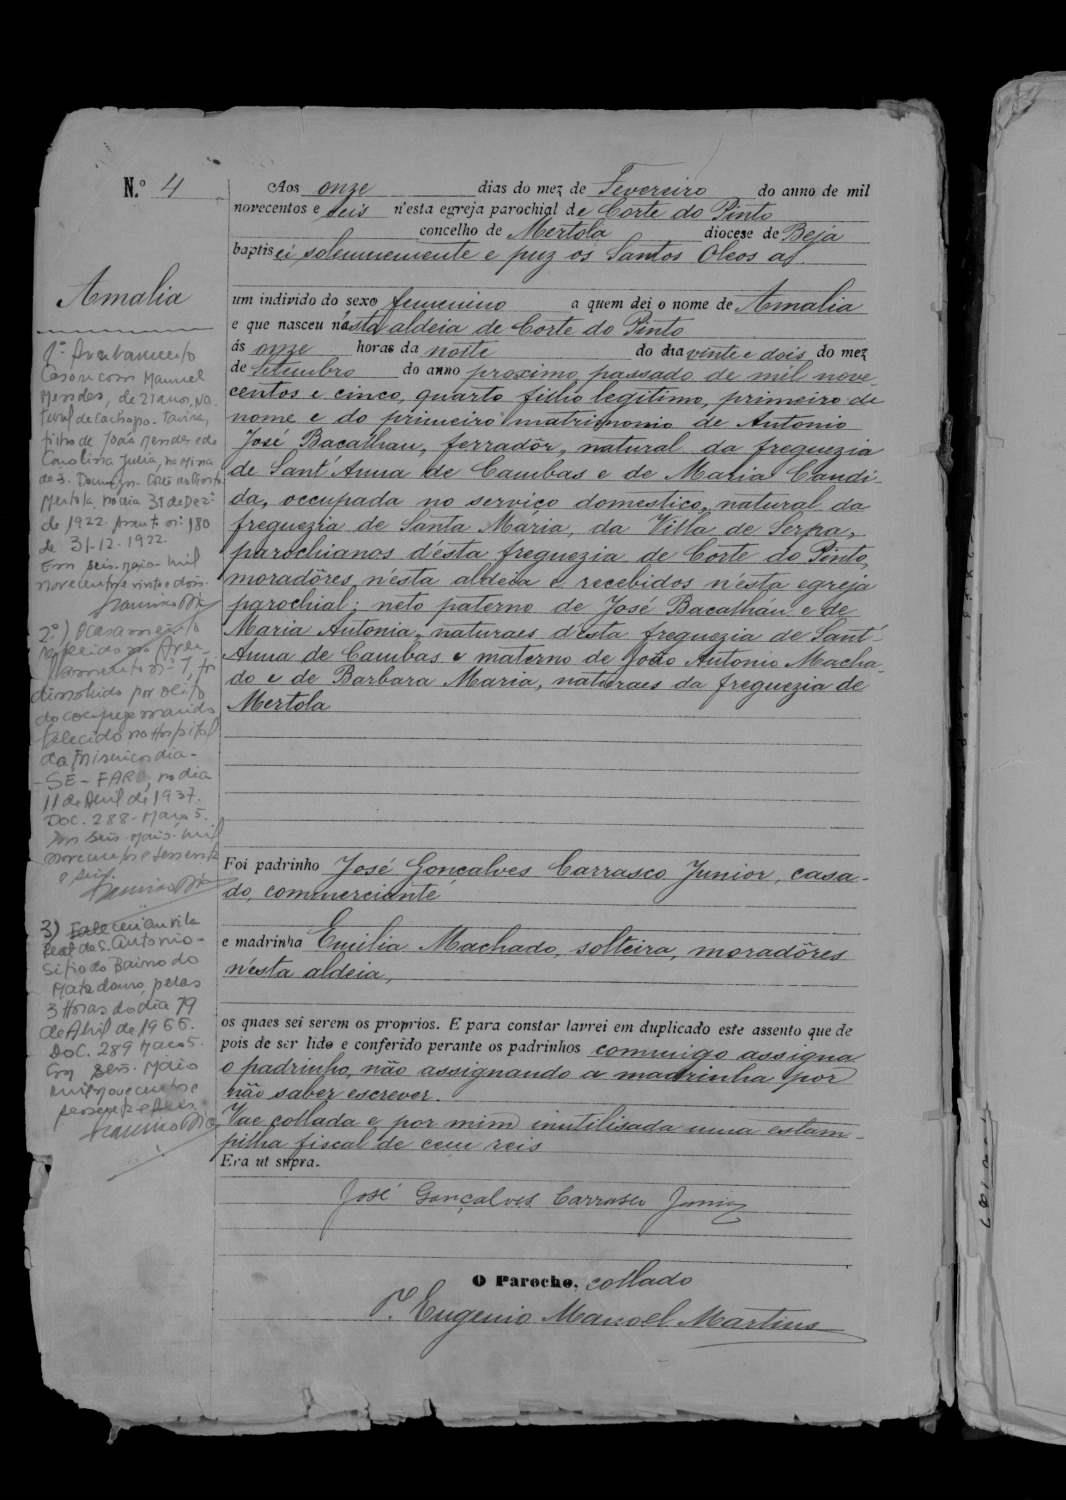 N.º 4
Amalia
Aos onze dias do mez de Fevereiro do anno de mil
novecentos e seis n'esta egreja parochial de Corte do Pinto
concelho de Mertola diocese de Beja
baptisei solemnemente e puz os Santos Oleos a
um individo do sexo femenino a quem dei o nome de Amalia
e que nasceu n'ésta aldeia de Corte do Pinto
ás onze horas da noite do dia vinte e dois do mez
de Setembro do anno proximo passado de mil nove-
centos e cinco, quarto filho legitimo, primeiro de
nome e do primeiro matrimonio de Antonio
José Bacalhau, ferradôr, natural da freguezia
de Sant'Anna de Cambas e de Maria Candi-
da, occupada no serviço domestico, natural da
freguezia de Santa Maria, da Villa de Serpa,
parochianos d'ésta freguezia de Corte do Pinto,
moradôres n'ésta aldeia e recebidos n'ésta egreja
parochial; neto paterno de José Bacalháu e de
Maria Antonia, naturaes d'ésta freguezia de Sant'
Anna de Cambas e materno de João Antonio Macha-
do e de Barbara Maria, naturaes da freguezia de
Mertola
Foi padrinho José Gonçalves Carrasco Junior, casa-
do, commerciante
e madrinha Emilia Machado, solteira, moradôres
n'ésta aldeia,
os quaes sei serem os proprios. E para constar lavrei em duplicado este assento que de
pois de ser lido e conferido perante os padrinhos commigo assigna
o padrinho, não assignando a madrinha por
não saber escrever.
Vae collada e por mim inutilisada uma estam-
pilha fiscal de cem reis
Era ut supra.
José Gonçalves Carrasco Junior
O Parocho, collado
P. Eugenio Manoel Martins
1.º Averbamento
Casou com Manuel
Mendes, de 21 anos, na
tural de Cachopo - Tavira,
filho de João Mendes e de
Carolina Julia, na Mina
de S. Domingos. Corte do Pinto
Mertola, no dia 31 de Dez.º
de 1922. Assento nº 180
de 31-12-1922.
Em seis-maio-mil
novecentos e
2.º) O casamento
referido no Aver-
bamento nº 1, foi
dissolvido por obito
do conjuge marido
falecido no Hospital
da Misericordia -
- SÉ - FARO, no dia
11 de Abril de 1937.
Doc. 288 - Maço 5.
Em seis-Maio-mil
novecentos e sessenta
e seis.
3) Faleceu em Vila
Real de S. Antonio -
Sitio do Bairro do
Matadouro, pelas
3 Horas do dia 19
de Abril de 1966.
Doc. 289 Maço 5.
Em seis-Maio
mil novecentos e
sessenta e seis